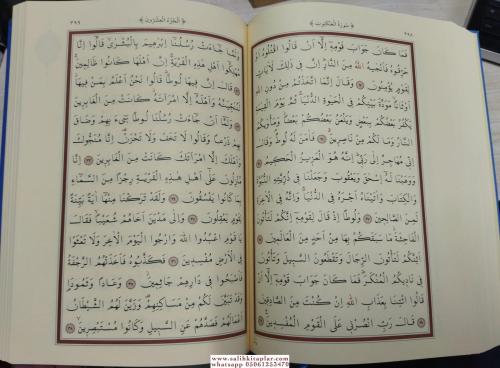 ٣٩٨ سُورَةُ الْعَنْكَبُوتِ
فَمَا كَانَ جَوَابَ قَوْمِهِ إِلَّا أَنْ قَالُوا اقْتُلُوهُ أَوْ
حَرِّقُوهُ فَأَنْجٰيهُ اللّٰهُ مِنَ النَّارِ إِنَّ فِي ذٰلِكَ لَاٰيَاتٍ
لِقَوْمٍ يُؤْمِنُونَ ﴿٢٤﴾ وَقَالَ إِنَّمَا اتَّخَذْتُمْ مِنْ دُونِ اللّٰهِ
أَوْثَانًا مَوَدَّةَ بَيْنِكُمْ فِي الْحَيٰوةِ الدُّنْيَا ثُمَّ يَوْمَ الْقِيٰمَةِ
يَكْفُرُ بَعْضُكُمْ بِبَعْضٍ وَيَلْعَنُ بَعْضُكُمْ بَعْضًا وَمَأْوٰيكُمُ
النَّارُ وَمَا لَكُمْ مِنْ نَاصِرِينَ ﴿٢٥﴾ فَاٰمَنَ لَهُ لُوطٌ وَقَالَ
إِنِّي مُهَاجِرٌ إِلٰى رَبِّي إِنَّهُ هُوَ الْعَزِيزُ الْحَكِيمُ ﴿٢٦﴾
وَوَهَبْنَا لَهُ إِسْحٰقَ وَيَعْقُوبَ وَجَعَلْنَا فِي ذُرِّيَّتِهِ النُّبُوَّةَ
وَالْكِتَابَ وَاٰتَيْنَاهُ أَجْرَهُ فِي الدُّنْيَا وَإِنَّهُ فِي الْاٰخِرَةِ
لَمِنَ الصَّالِحِينَ ﴿٢٧﴾ وَلُوطًا إِذْ قَالَ لِقَوْمِهِ إِنَّكُمْ لَتَأْتُونَ
الْفَاحِشَةَ مَا سَبَقَكُمْ بِهَا مِنْ أَحَدٍ مِنَ الْعَالَمِينَ ﴿٢٨﴾
أَئِنَّكُمْ لَتَأْتُونَ الرِّجَالَ وَتَقْطَعُونَ السَّبِيلَ وَتَأْتُونَ
فِي نَادِيكُمُ الْمُنْكَرَ فَمَا كَانَ جَوَابَ قَوْمِهِ إِلَّا أَنْ
قَالُوا ائْتِنَا بِعَذَابِ اللّٰهِ إِنْ كُنْتَ مِنَ الصَّادِقِينَ
﴿٢٩﴾ قَالَ رَبِّ انْصُرْنِي عَلَى الْقَوْمِ الْمُفْسِدِينَ ﴿٣٠﴾
اَلْجُزْءُ الْعِشْرُونَ ٣٩٩
وَلَمَّا جَاءَتْ رُسُلُنَا إِبْرٰهِيمَ بِالْبُشْرٰى قَالُوا إِنَّا
مُهْلِكُوا أَهْلِ هٰذِهِ الْقَرْيَةِ إِنَّ أَهْلَهَا كَانُوا ظَالِمِينَ ﴿٣١﴾
قَالَ إِنَّ فِيهَا لُوطًا قَالُوا نَحْنُ أَعْلَمُ بِمَنْ فِيهَا
لَنُنَجِّيَنَّهُ وَأَهْلَهُ إِلَّا امْرَأَتَهُ كَانَتْ مِنَ الْغَابِرِينَ
﴿٣٢﴾ وَلَمَّا أَنْ جَاءَتْ رُسُلُنَا لُوطًا سِيءَ بِهِمْ وَضَاقَ
بِهِمْ ذَرْعًا وَقَالُوا لَا تَخَفْ وَلَا تَحْزَنْ إِنَّا مُنَجُّوكَ
وَأَهْلَكَ إِلَّا امْرَأَتَكَ كَانَتْ مِنَ الْغَابِرِينَ ﴿٣٣﴾ إِنَّا
مُنْزِلُونَ عَلٰى أَهْلِ هٰذِهِ الْقَرْيَةِ رِجْزًا مِنَ السَّمَاءِ
بِمَا كَانُوا يَفْسُقُونَ ﴿٣٤﴾ وَلَقَدْ تَرَكْنَا مِنْهَا اٰيَةً بَيِّنَةً
لِقَوْمٍ يَعْقِلُونَ ﴿٣٥﴾ وَإِلٰى مَدْيَنَ أَخَاهُمْ شُعَيْبًا فَقَالَ
يَا قَوْمِ اعْبُدُوا اللّٰهَ وَارْجُوا الْيَوْمَ الْاٰخِرَ وَلَا تَعْثَوْا
فِي الْأَرْضِ مُفْسِدِينَ ﴿٣٦﴾ فَكَذَّبُوهُ فَأَخَذَتْهُمُ الرَّجْفَةُ
فَأَصْبَحُوا فِي دَارِهِمْ جَاثِمِينَ ﴿٣٧﴾ وَعَادًا وَثَمُودَا
وَقَدْ تَبَيَّنَ لَكُمْ مِنْ مَسَاكِنِهِمْ وَزَيَّنَ لَهُمُ الشَّيْطَانُ
أَعْمَالَهُمْ فَصَدَّهُمْ عَنِ السَّبِيلِ وَكَانُوا مُسْتَبْصِرِينَ ﴿٣٨﴾
www.salihkitaplar.com
whatsapp 05061253470